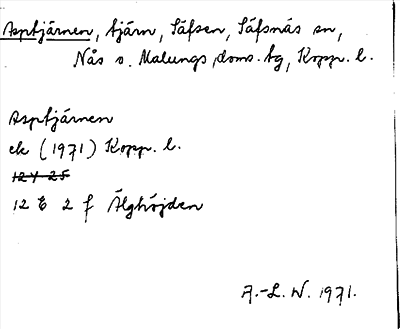 Asptjärnen, tjärn, Säfsen, Säfsnäs sn,
Nås o. Malungs doms. tg, Kopp. l.
Asptjärnen
ek (1971) Kopp. l.
12 E 2 f Älghöjden
A.-L. W. 1971.